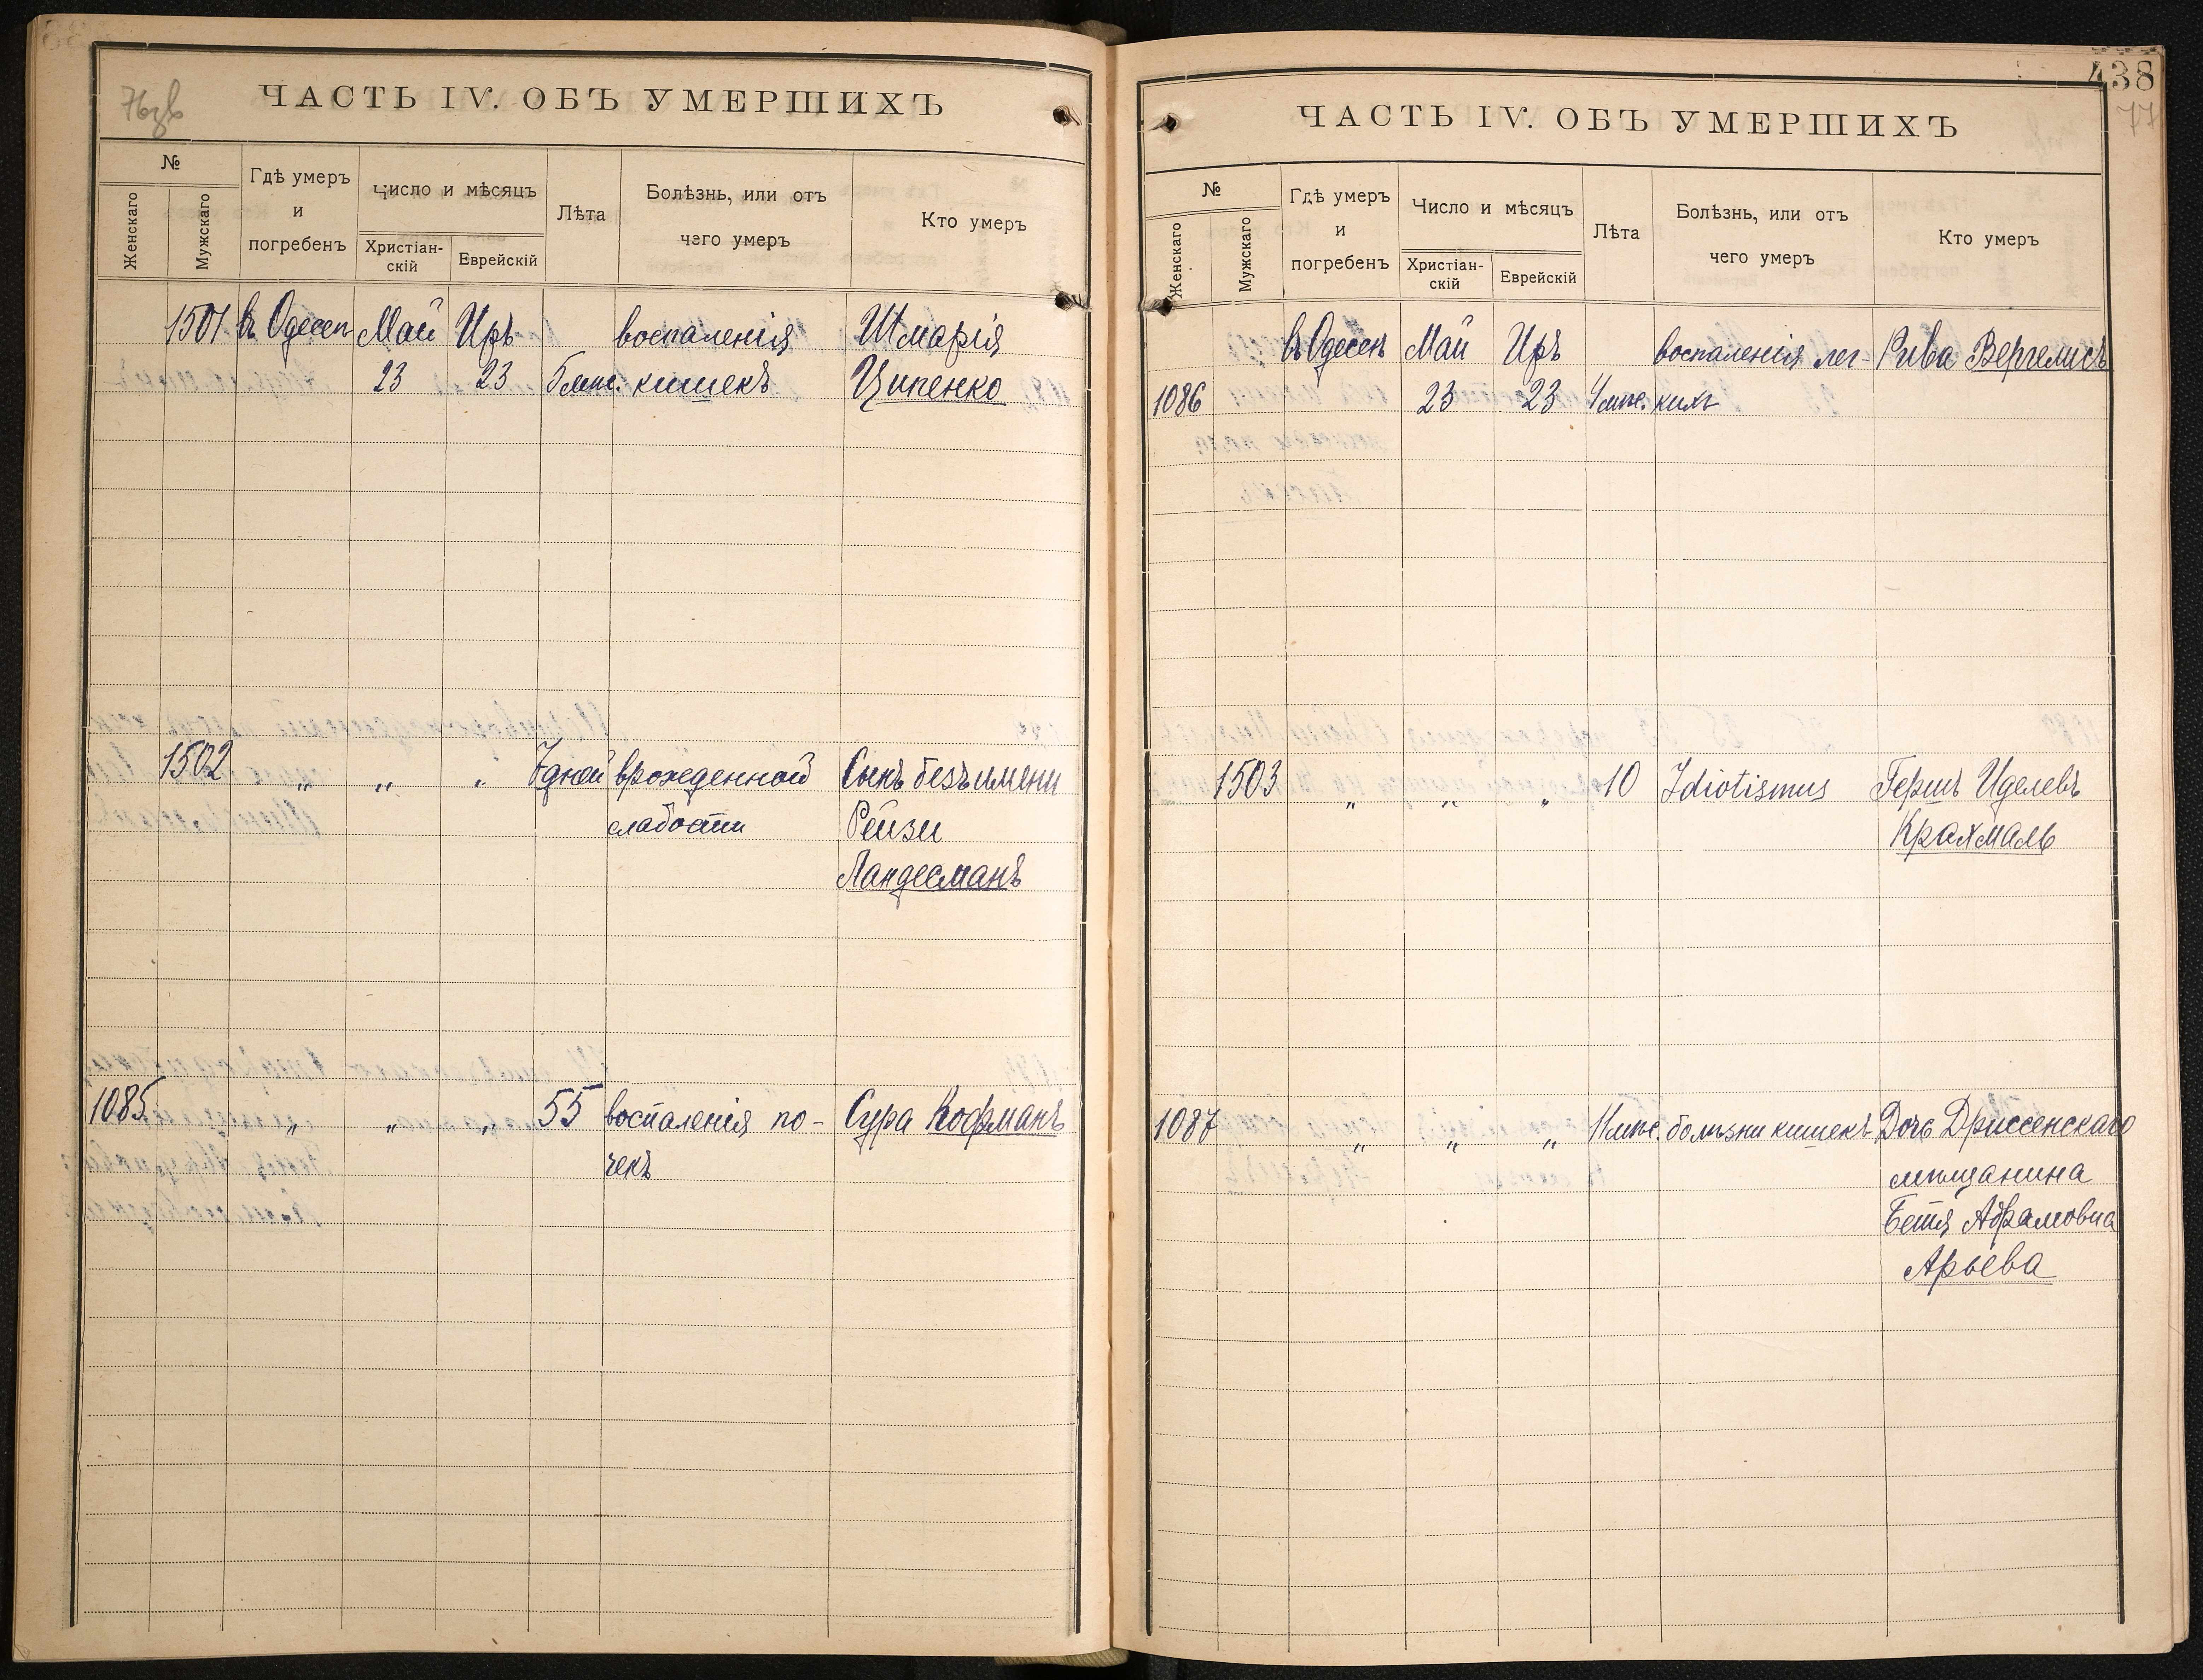 76зв
ЧАСТЬ IV. ОБЪ УМЕРШИХЪ
№
Женскаго
Мужскаго
Гдѣ умеръ
и
погребенъ
Число и мѣсяцъ
Христіан-
скій
Еврейскій
Лѣта
Болѣзнь, или отъ
чего умеръ
Кто умеръ
1501 въ Одессѣ Май Иръ воспаленія Шмарія
23 23 5 мѣс. кишекъ Ципенко
1502 „ „ „ 7 дней врожденной Сынъ безъ имени
слабости Рейзи
Ландесманъ
1085 „ „ „ 55 воспаленія по- Сура Кофманъ
чекъ
438
77
ЧАСТЬ IV. ОБЪ УМЕРШИХЪ
№
Женскаго
Мужскаго
Гдѣ умеръ
и
погребенъ
Число и мѣсяцъ
Христіан-
скій
Еврейскій
Лѣта
Болѣзнь, или отъ
чего умеръ
Кто умеръ
въ Одессѣ Май Иръ воспаленія лег- Рива Вергелисъ
1086 23 23 4 мѣс. кихъ
1503 „ „ „ 10 Idiotismus Гершъ Иделевъ
Крахмаль
1087 „ „ „ 11 мѣс. болѣзни кишекъ Дочь Дриссенскаго
мѣщанина
Бетя Абрамовна
Арьева